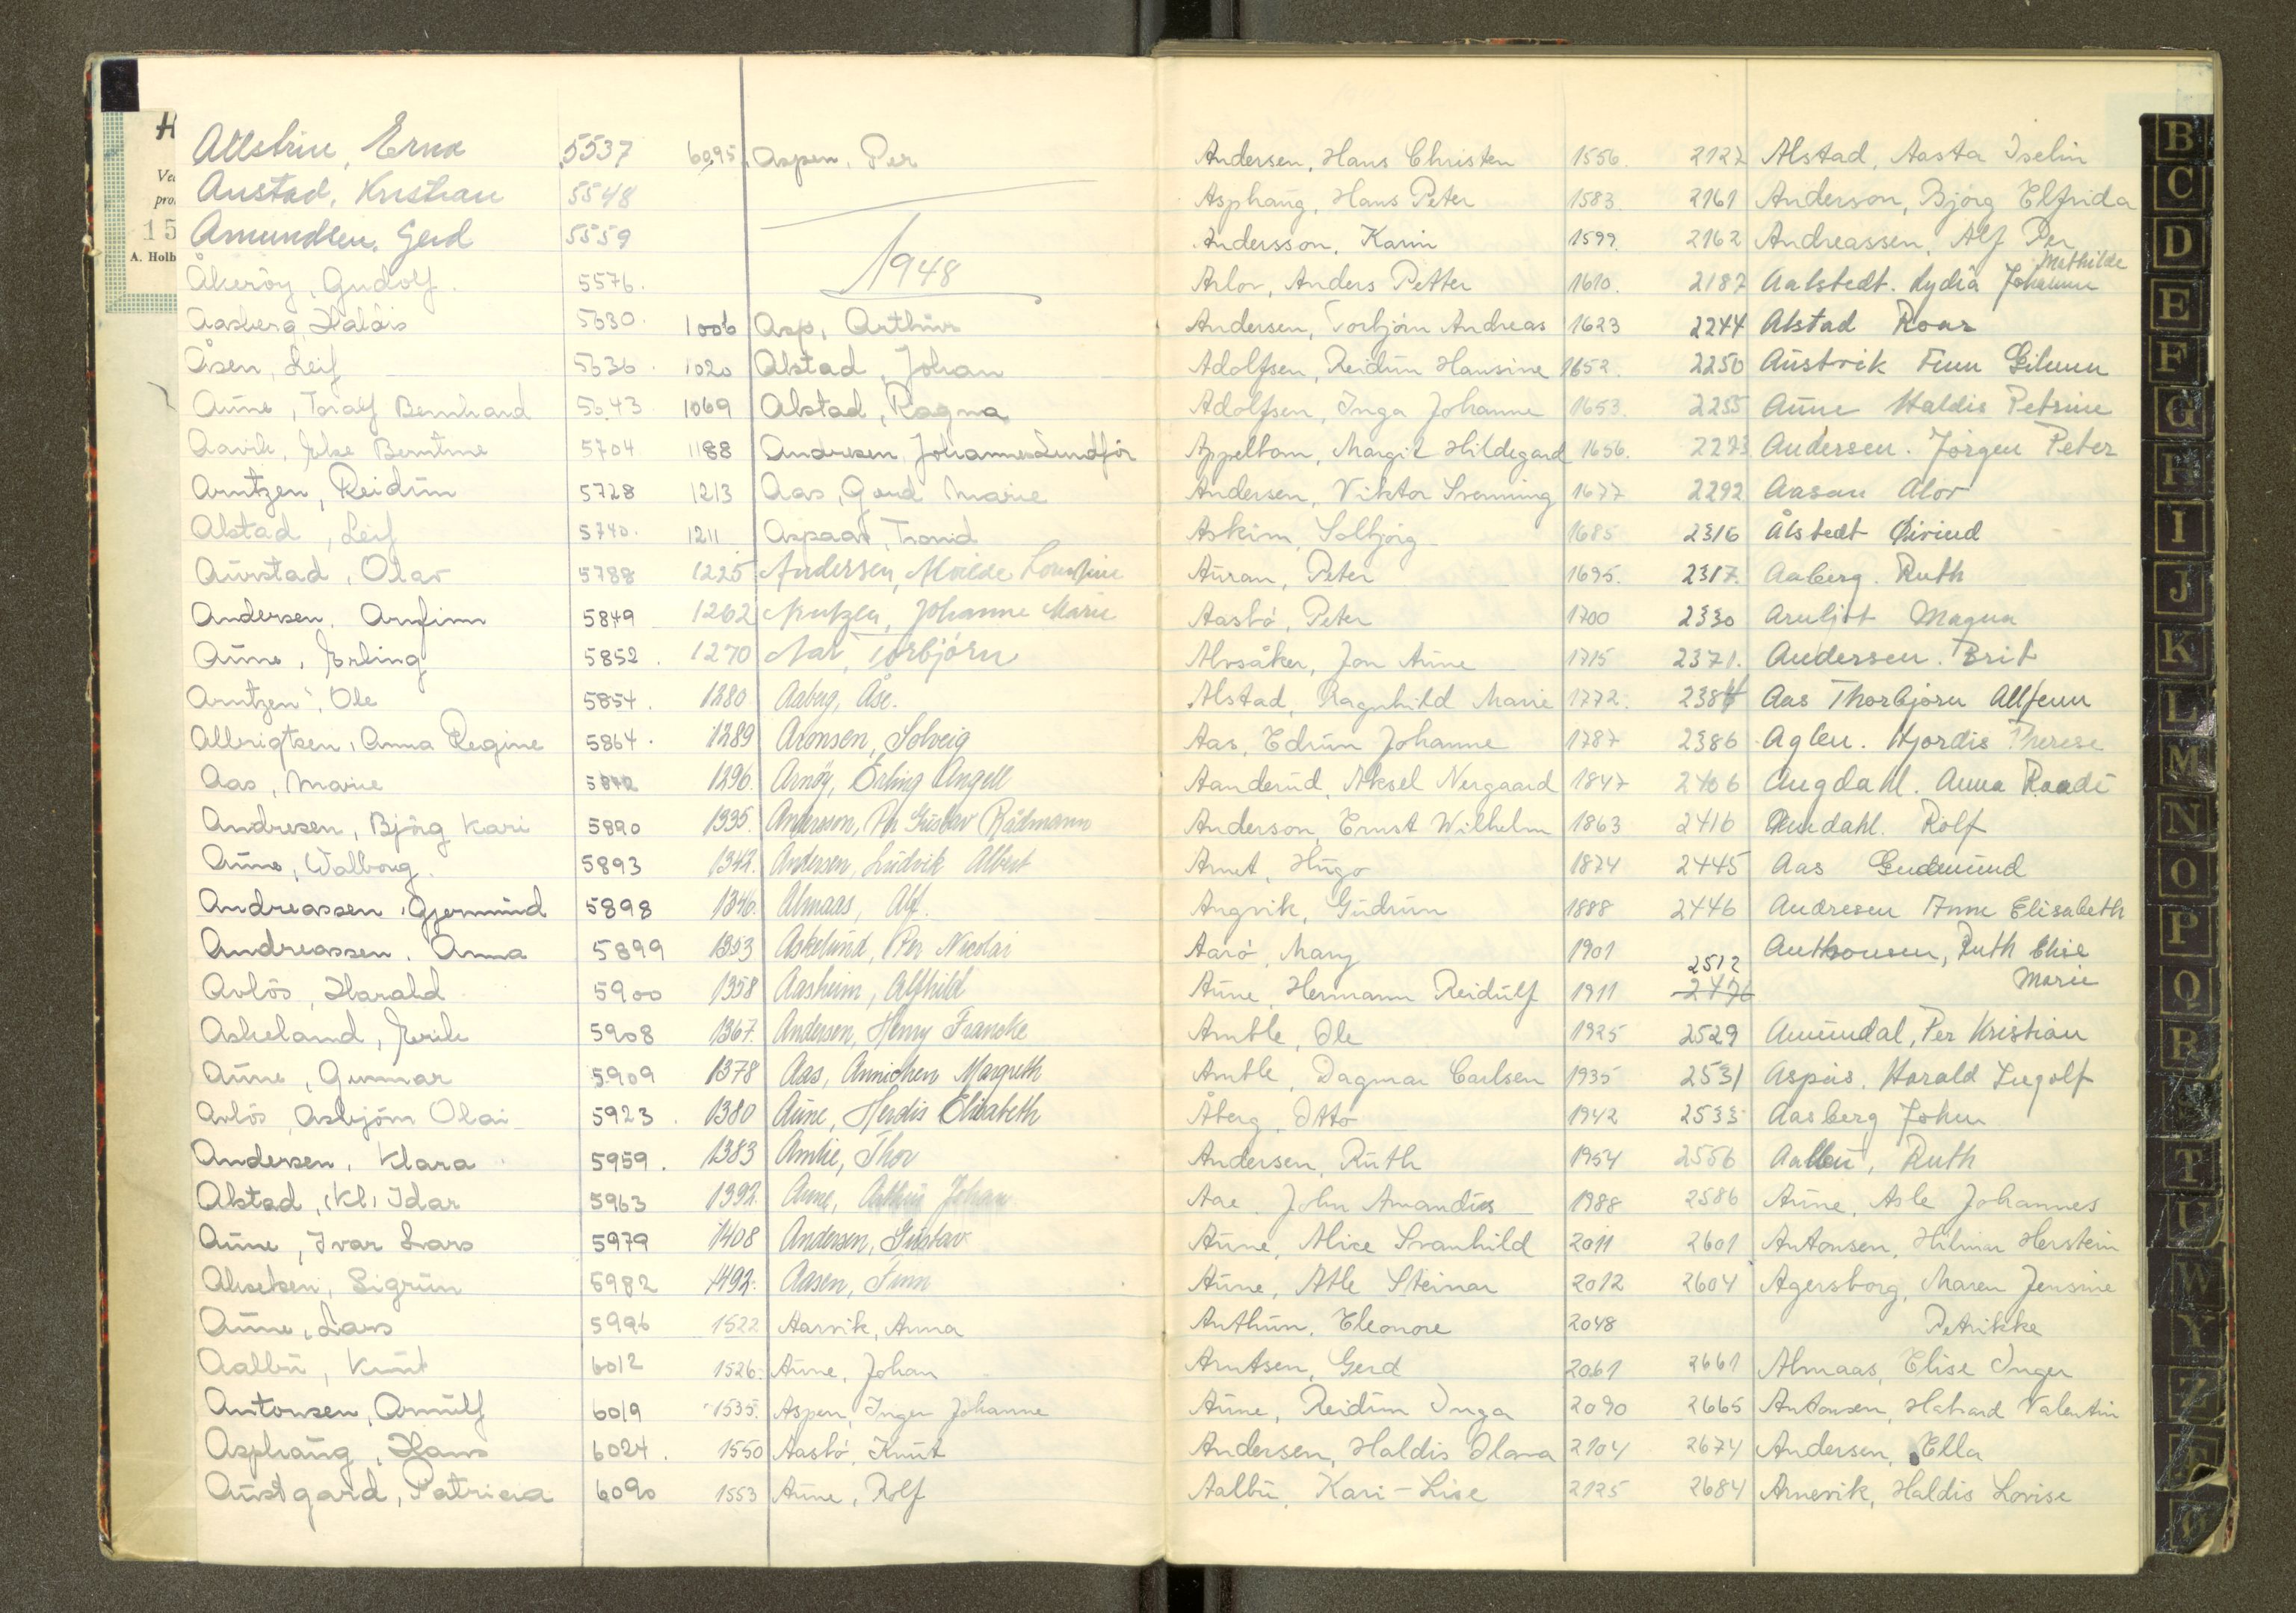 Austad, Kristian 5548
Amundsen, Gerd 5559
Åkerøy, Gudolf. 5576.
Aasberg, Haldis 5630.
Åsen, Leif 5636.
Aune, Toralf Bernhard 5643.
Aavik, Else Berntine 5704
Arntzen, Reidun 5728
Alstad, Leif 5740.
Aurstad, Olav 5788
Andersen, Arnfinn 5849
Aune, Erling 5852.
Arntzen, Ole 5854.
Albrigtsen, Anna Regine 5864.
Aas, Marie 5872
Andresen, Bjørg Kari 5890
Aune, Walborg. 5893
Andreassen, Gjermund 5898
Andreassen, Anna 5899
Avløs, Harald 5900
Askeland, Erik 5908
Aune, Gunnar 5909
Avløs, Asbjørn Olai 5923.
Andersen, Klara 5959.
Alstad, (Kl) Idar 5963
Aune, Ivar Lars 5979
Akselsen, Sigrun 5982
Aune, Lars 5996
Aalbu, Knut 6012
Antonsen, Arnulf 6019
Asphaug, Hans 6024.
Austgard, Patricia 6090
6095. Aspen, Per
1948
1006 Asp, Arthur
1020 Alstad, Johan
1069 Alstad, Ragna
1188 Andresen, Johannes Lundfør
1213 Aas, Gerd Marie
1211 Aspaas, Trond
1225 Andersen, Louise
1262 Arntzen, Johanne Marie
1270 Torbjørn
1280 Aaberg, Åse.
1289 Aronsen, Solveig
1296. Arnøy, Erling Angell
1335. Andersson, Per Gustav Rådmann
1342. Andersen, Ludvik Albert
1346. Almaas, Alf.
1353 Askelund, Per Nicolai
1358 Aasheim, Alfhild
1367. Andersen, Henry Francke
1378 Aas, Annichen Margreth
1380 Aune, Herdis Elisabeth
1383 Amlie, Thor
1392. Aune, Johan
1408 Andersen, Gustav
1492. Aasen, Finn
1522 Aarvik, Anna
1526. Aune, Johan
1535. Aspen, Inger Johanne
1550 Aasbø, Knut
1553 Aune, Rolf
Andersen, Hans Christen 1556.
Asphaug, Hans Peter 1583.
Andersson, Karin 1599.
Arlov, Anders Petter 1610.
Andersen, Torbjørn Andreas 1623
Adolfsen, Reidun Hansine 1652.
Adolfsen, Inga Johanne 1653.
Appelbom, Margit Hildegard 1656.
Andersen, Viktor Svenning 1677
Askim, Solbjørg 1685
Auran, Peter 1695.
Aasbø, Peter 1700
Alvsåker, Jon Arne 1715
Alstad, Ragnhild Marie 1772.
Aas, Edrun Johanne 1787
Aanderud, Aksel Nergaard 1847
Anderson, Ernst Wilhelm 1863
Arnet, Hugo 1874
Angvik, Gudrun 1888
Aarø, Mary 1901
Aune, Hermann Reidulf 1911
Amble, Ole 1925
Amble, Dagmar Carlsen 1935
Åberg, Otto 1942
Andersen, Ruth 1954
Aae, John Amandus 1988
Aune, Alice Svanhild 2011
Aune, Atle Steinar 2012
Anthun, Eleonore 2048
Arntsen, Gerd 2061
Aune, Reidun Inga 2090
Andersen, Haldis Olava 2104
Aalbu, Kari-Lise 2125
2127 Alstad, Aasta Iselin
2161 Anderson, Bjørg Elfrida
2162 Andreassen, Alf Per
Mathilde
2187 Aalstedt. Lydia Johanne
2244 Alstad Roar
2250 Austvik Finn Gilmun
2255 Aune Haldis Petrine
2273 Andersen. Jørgen Peter
2292 Aasan Alov
2316 Ålstedt Øivind
2317. Aaberg. Ruth
2330 Arnljot Magna
2371. Andersen. Brit
2384 Aas Thorbjørn Allfenn
2386 Aglen. Hjørdis Therese
2406 Angdahl. Anna Raadi
2416 Amdahl. Rolf
2445 Aas Gudmund
2446 Andresen Anne Elisabeth
2512 Anthonsen, Ruth Elise
2476 Marie
2529 Amundal, Per Kristian
2531 Aspås, Harald Ingolf
2533 Aasberg John
2556 Aalbu, Ruth
2586 Aune, Asle Johannes
2601 Antonsen, Hilmar Herstein
2604 Agersborg, Maren Jensine
Petrikke
2661 Almaas, Elise Inger
2665 Antonsen, Halvard Valentin
2674 Andersen, Ella
2684 Arnevik, Haldis Lovise
B
C
D
E
F
G
H
I
J
K
L
M
N
O
P
Q
R
S
T
U
W
Y
Z
Æ
Ø